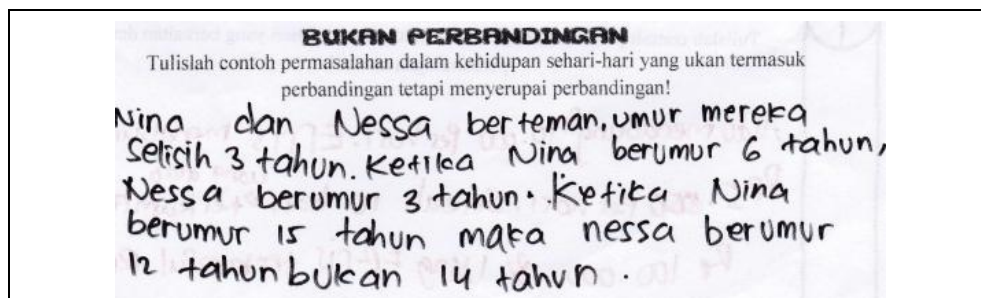 BUKAN PERBANDINGAN
Tulislah contoh permasalahan dalam kehidupan sehari-hari yang ukan termasuk
perbandingan tetapi menyerupai perbandingan!
Nina dan Nessa berteman, umur mereka
selisih 3 tahun. Ketika Nina berumur 6 tahun,
Nessa berumur 3 tahun. Ketika Nina
berumur 15 tahun maka nessa berumur
12 tahun bukan 14 tahun.